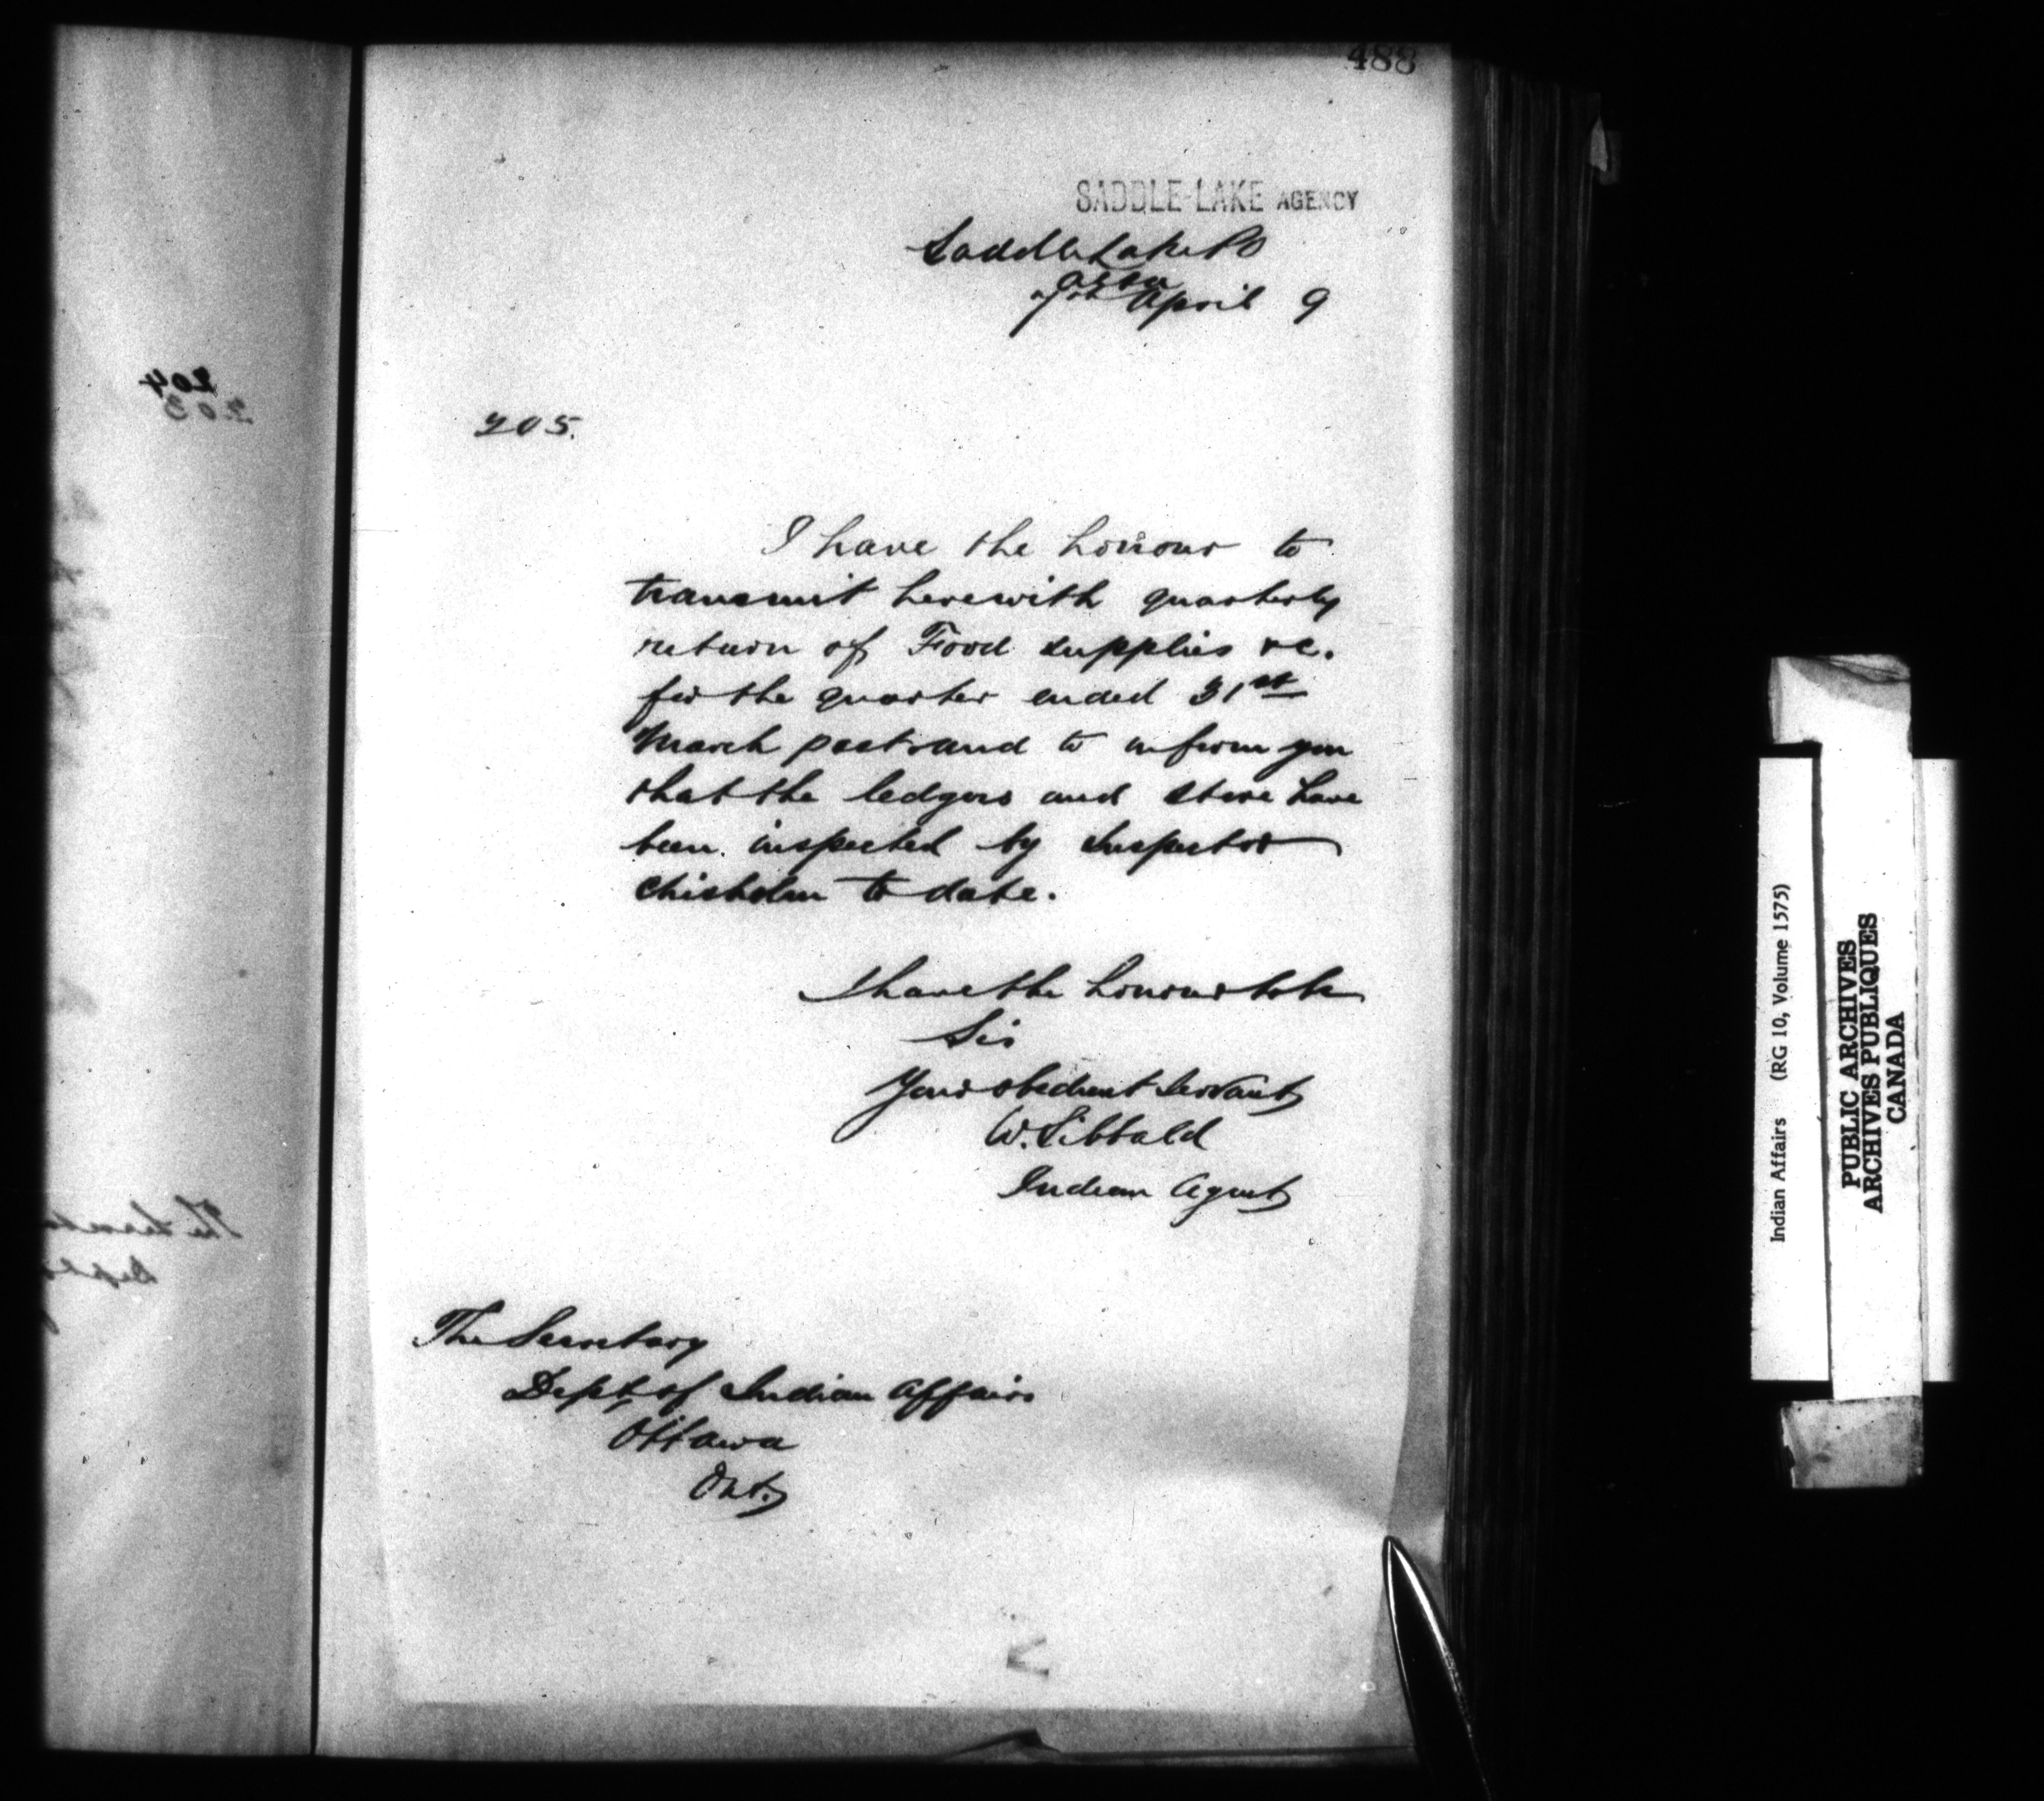 488
SADDLE-LAKE AGENCY
Saddle Lake PO
Assa
7th April 9
204
203
205.
I have the honour to
transmit herewith quarterly
return of Food supplies &c.
for the quarter ended 31st
March past and to inform you
that the ledgers and store have
been inspected by Inspector
Chisholm to date.
I have the honour to be
Sir
Your obedient Servant
W. Sibbald
Indian Agent
The Secretary
Dept. of Indian Affairs
Ottawa
Ont.
Indian Affairs (RG 10, Volume 1575)
PUBLIC ARCHIVES
ARCHIVES PUBLIQUES
CANADA